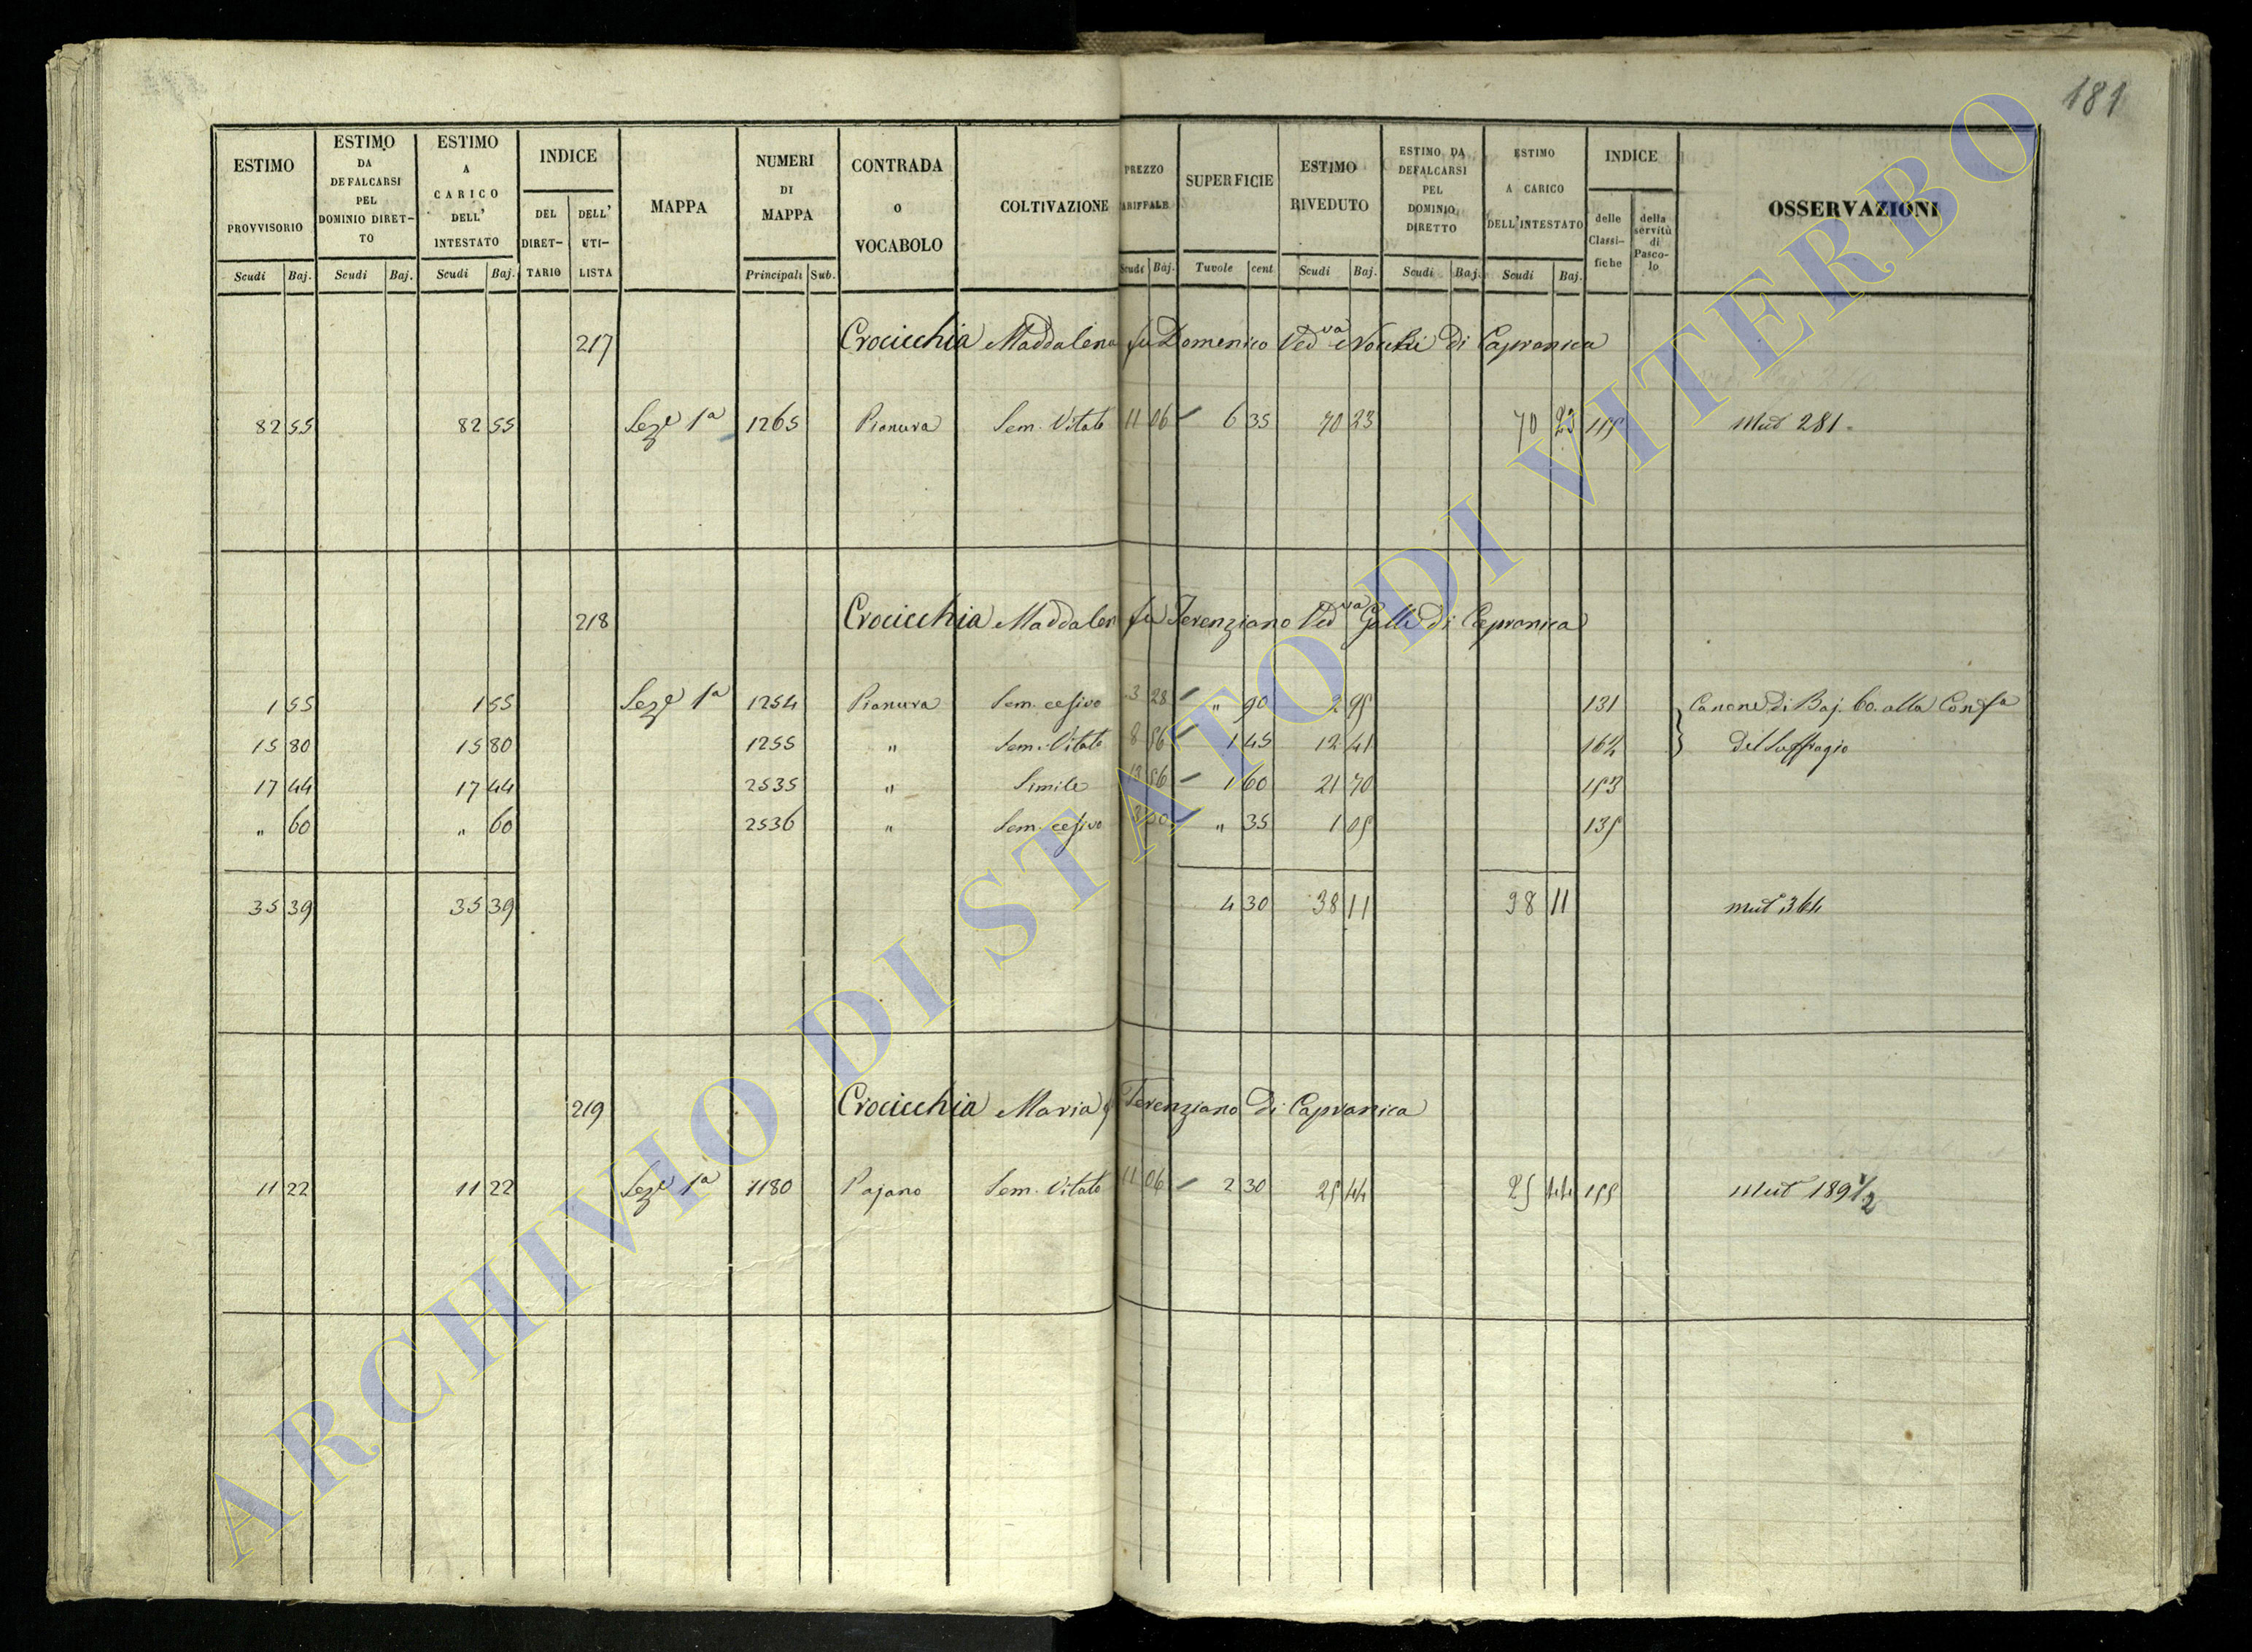 181
ESTIMO PROVVISORIO Scudi Baj. | ESTIMO DA DEFALCARSI PEL DOMINIO DIRET-TO Scudi Baj. | ESTIMO A CARICO DELL' INTESTATO Scudi Baj. | INDICE DEL DIRET-TARIO DELL' UTI-LISTA | MAPPA | NUMERI DI MAPPA Principali Sub. | CONTRADA O VOCABOLO | COLTIVAZIONE | PREZZO ARIFFALE Scudi Baj. | SUPERFICIE Tavole cent. | ESTIMO RIVEDUTO Scudi Baj. | ESTIMO DA DEFALCARSI PEL DOMINIO DIRETTO Scudi Baj. | ESTIMO A CARICO DELL'INTESTATO Scudi Baj. | INDICE delle Classi-fiche della servitù di Pasco-lo | OSSERVAZIONI
217 Crocicchia Maddalena fu Domenico Ved va di Capranica
82 55 82 55 Seze 1a 1265 Pianura Sem. Vitato 11 06 6 35 70 23 70 23 155 Mut 281
218 Crocicchia Maddalen fu Terenziano Ved va Galli di Capranica
1 55 1 55 Seze 1a 1254 Pianura Sem. cesivo 3 28 " 90 2 95 131 Canone di Baj. 60. alla Confa
15 80 15 80 1255 " Sem. Vitato 8 56 1 45 12 41 164 del Suffragio
17 44 17 44 2535 " Simile 13 56 1 60 21 70 153
" 60 " 60 2536 " Sem. cesivo 3 00 " 35 1 05 135
35 39 35 39 4 30 38 11 38 11 mut 364
219 Crocicchia Maria f Terenziano di Capranica
11 22 11 22 Seze 1a 1180 Pajano Sem. Vitato 11 06 2 30 25 44 25 44 155 Mut 189 1/2
ARCHIVIO DI STATO DI VITERBO